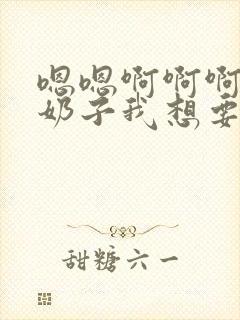 嗯嗯啊啊啊
奶子我想要
甜糖六一